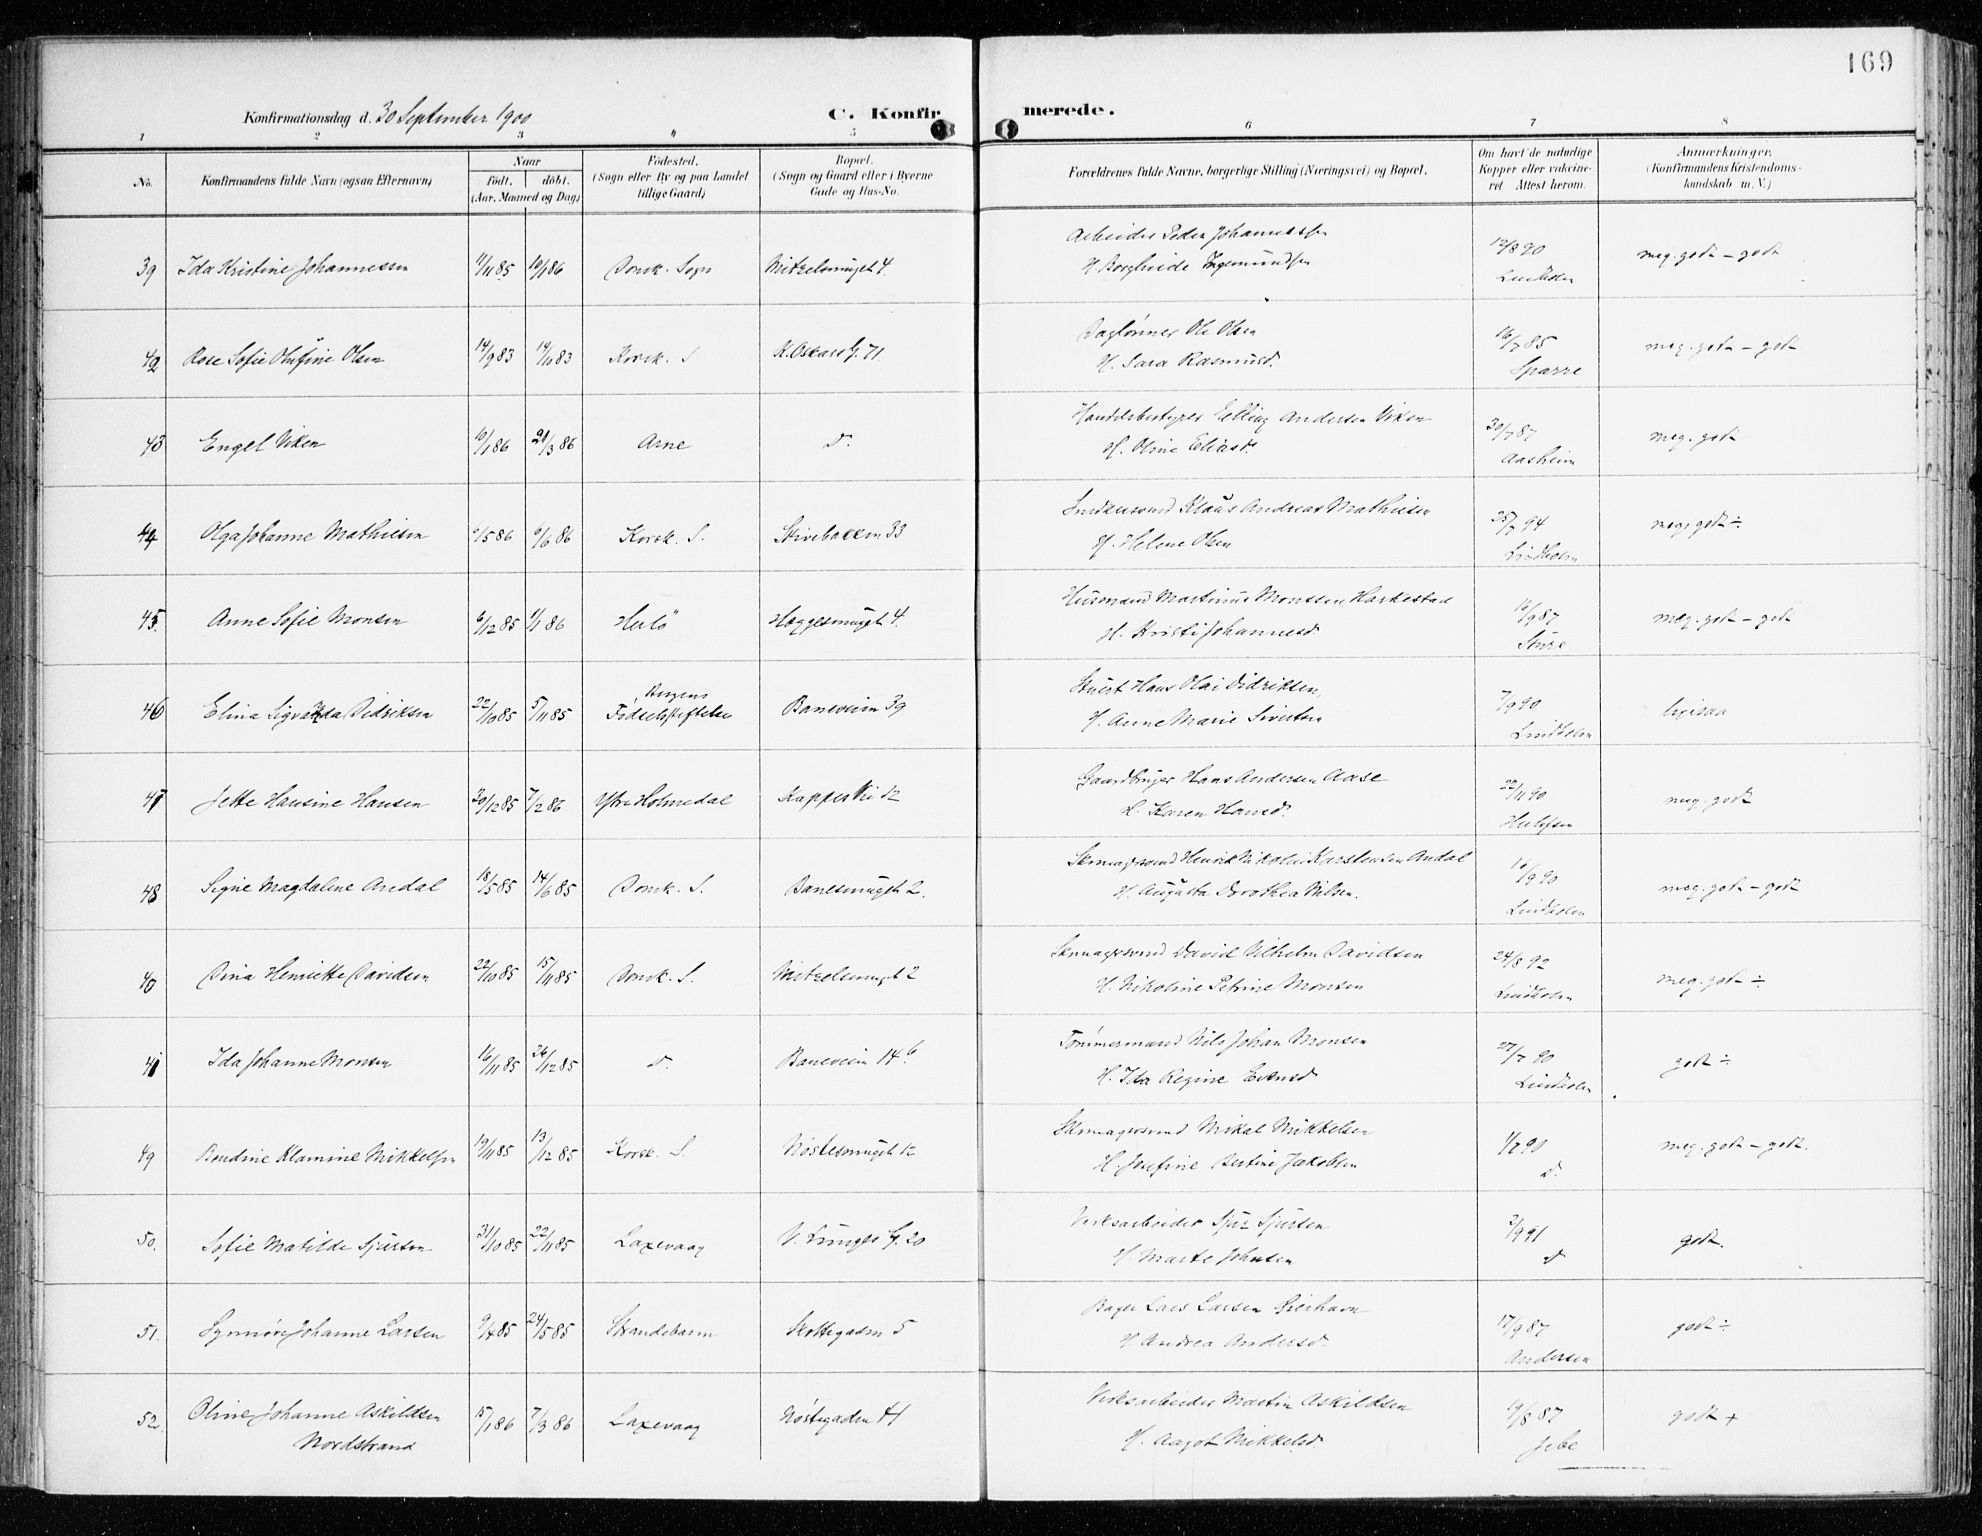 169
Konfirmationsdag d. 30 September 1900
C. Konfirmerede.
1 2 3 4 5 6 7 8
No.
Konfirmandens fulde Navn (ogsaa Efternavn)
Naar
födt. döbt.
(Aar, Maaned og Dag)
Födested.
(Sogn eller By og paa Landet
tillige Gaard)
Bopæl.
(Sogn og Gaard eller i Byerne
Gade og Hus-No.
Forældrenes fulde Navne, borgerlige Stilling (Næringsvei) og Bopæl.
Om havt de naturlige
Kopper eller vakcine-
ret Attest herom.
Anmærkninger.
(Konfirmandens Kristendoms-
kundskab m. V.)
39 Ida Kristine Johannesen 11/11 85 10/1 86 Domk. Sogn 4. Arbeider Peder Johannessen 12/8 90 meg. godt – godt
H. Borghilde Ingemundsen Lindholm
42 Rose Sofie Olufine Olsen 14/9 83 14/10 83 Korsk. S K. Oskars G. 71. Daglönner Ole Olsen 16/7 85 meg. godt – godt
H. Sara Rasmusd. Sparre
43 Engel Viken 10/1 86 21/3 86 Arne d. Handelsbestyrer Elling Andersen Viken 30/7 87 meg. godt
H. Oline Eliasd. Aasheim
44 Olga Johanne Mathiesen /5 86 6/6 86 Korsk. S. Stivebakken 33 Snedkersvend Klaus Andreas Mathiesen 25/7 94 meg. godt ÷
H. Helene Olsen Lindholm
45. Anne Sofie Monsen 6/12 85 1/1 86 Herlö Heggesmuget 4. Husmand Martinus Monssen Harkestad 16/9 87 meg. godt – godt
H. Kristi Johannesd. Sture
46 Elina Sigvalda Didriksen 22/10 85 5/11 85 Bergens Baneveien 39 Stuert Hans Olai Didriksen, 7/9 90 ligesaa
Födselsstiftelse H. Anne Marie Sivertsen Lindholm
47 Jette Hansine Hansen 30/12 85 7/2 86 Ytre Holmedal 12 Gaardbruger Hans Andersen Aase 22/11 90 meg. godt
H. Karen Hansd. Herlofsen
48 Signe Magdaline Ardal 18/5 85 14/6 85 Domk. S. Banesmuget 2. Skomagersvend Henrik Nikolai Karstensen Ardal 16/9 90 meg. godt – godt
H. Augusta Dorothea Nilsen. Lindholm
40 Dina Henriette Davidsen 22/10 85 15/11 85 Domk. S. 2 Skomagersvend David Vilhelm Davidsen 24/8 92 meg. godt ÷
H. Nikoline Petrine Monsen Lindholm
41 Ida Johanne Monsen 16/11 85 26/12 85 d. Baneveien 14 b Tömmermand Nils Johan Monsen 27/7 90 godt ÷
H. Ida Regine Evensd. Lindholm
49 Klamine Mikkelsen 19/11 85 13/12 85 Korsk. S. Nöstesmuget 12 Skomagersvend Mikal Mikkelsen 1/7 90 meg. godt – godt.
H. Josefine Bertine Jakobsen d.
50. Sofie Matilde Sjursen 31/10 85 22/11 85 Laxevaag V. Lunges G. 20 Verksarbeider Sjur Sjursen 2/9 91 godt.
H. Marte Johnsen d
51. Synnöve Johanne Larsen 9/4 85 24/5 85 Strandebarm Skottegaden 5 Bager Lars Larsen 17/9 87 godt ÷
H. Andrea Andersd. Andersen
52. Oline Johanne Askildsen 15/1 86 7/3 86 Laxevaag Nöstegaden 41 Verksarbeider Martin Askildsen 9/8 87 godt +
Nordstrand H. Aagot Mikkelsd. Jebe